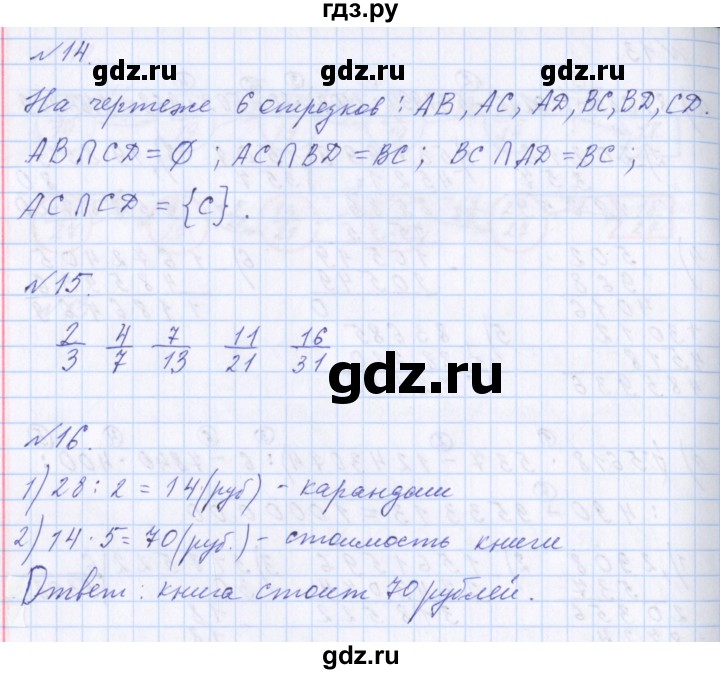 гдз.ру
№14.
gdz.ru gdz.ru
На чертеже 6 отрезков: AB, AC, AD, BC, BD, CD.
AB∩CD=∅; AC∩BD=BC; BC∩AD=BC;
AC∩CD={C}.
gdz.ru gdz.ru
№15.
2/3 4/7 7/13 11/21 16/31
gdz.ru
№16.
gdz.ru
1) 28:2=14(руб) - карандаш
2) 14·5=70(руб.) - стоимость книги
Ответ: книга стоит 70 рублей.
gdz.ru gdz.ru
gdz.ru